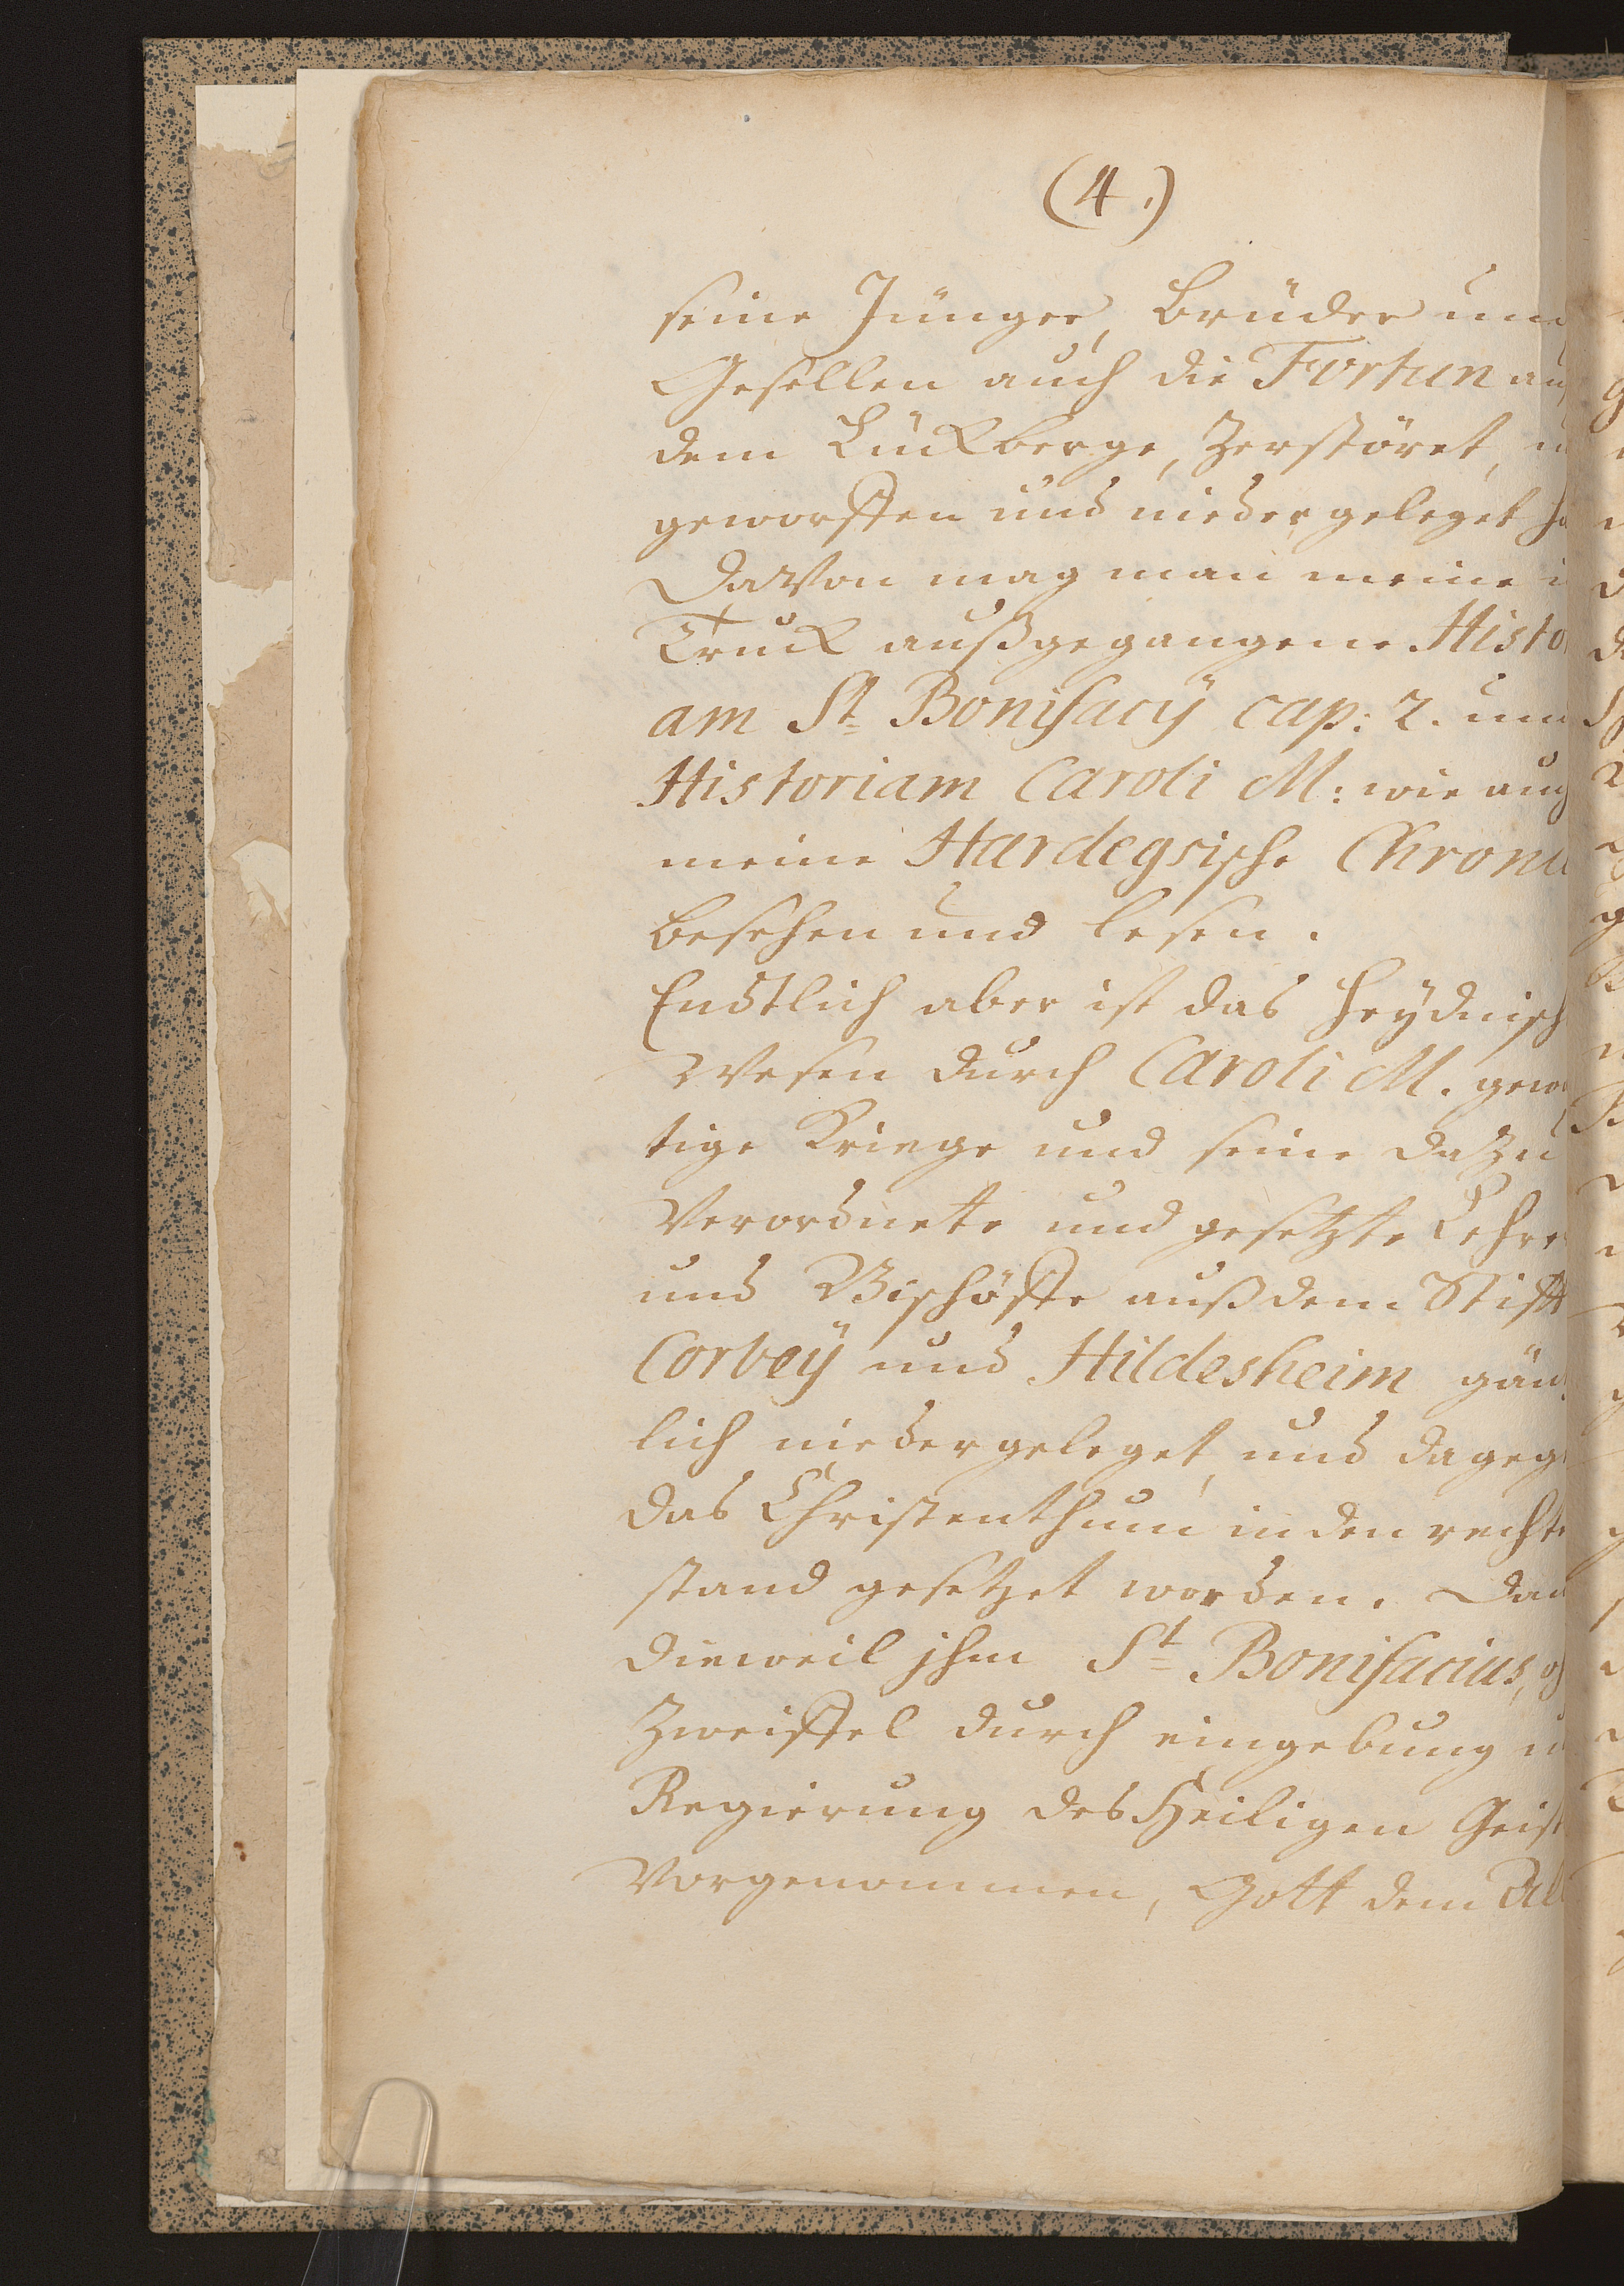 (4.)
seine Jünger, Brüder und
Gesellen auch die Fortun auf
dem Lückberge, Zerstöret, u
geworffen und niedergeleget ha
Davon mag man meine i
Truck außgegangene Histo
am St Bonifacÿ cap: 2. und
Historiam Caroli M: wie auch
meine Hardegsische Chroni
besehen und lesen.
Endtlich aber ist das Heÿdnisch
Wesen durch Caroli M. gewa
tige Kriege und seine dazu
Verordnete und gesetzte Lehre
und Bischöffe auß dem Stifft
Corbeÿ und Hildesheim gäntz
lich niedergeleget, und dagege
das Christenthum in den rechte
stand gesetzet worden. Dan
dieweil jhm St Bonifacius, oh
Zweiffel durch eingebung u
Regierung des Heiligen Geist
Vorgenommen, Gott dem All